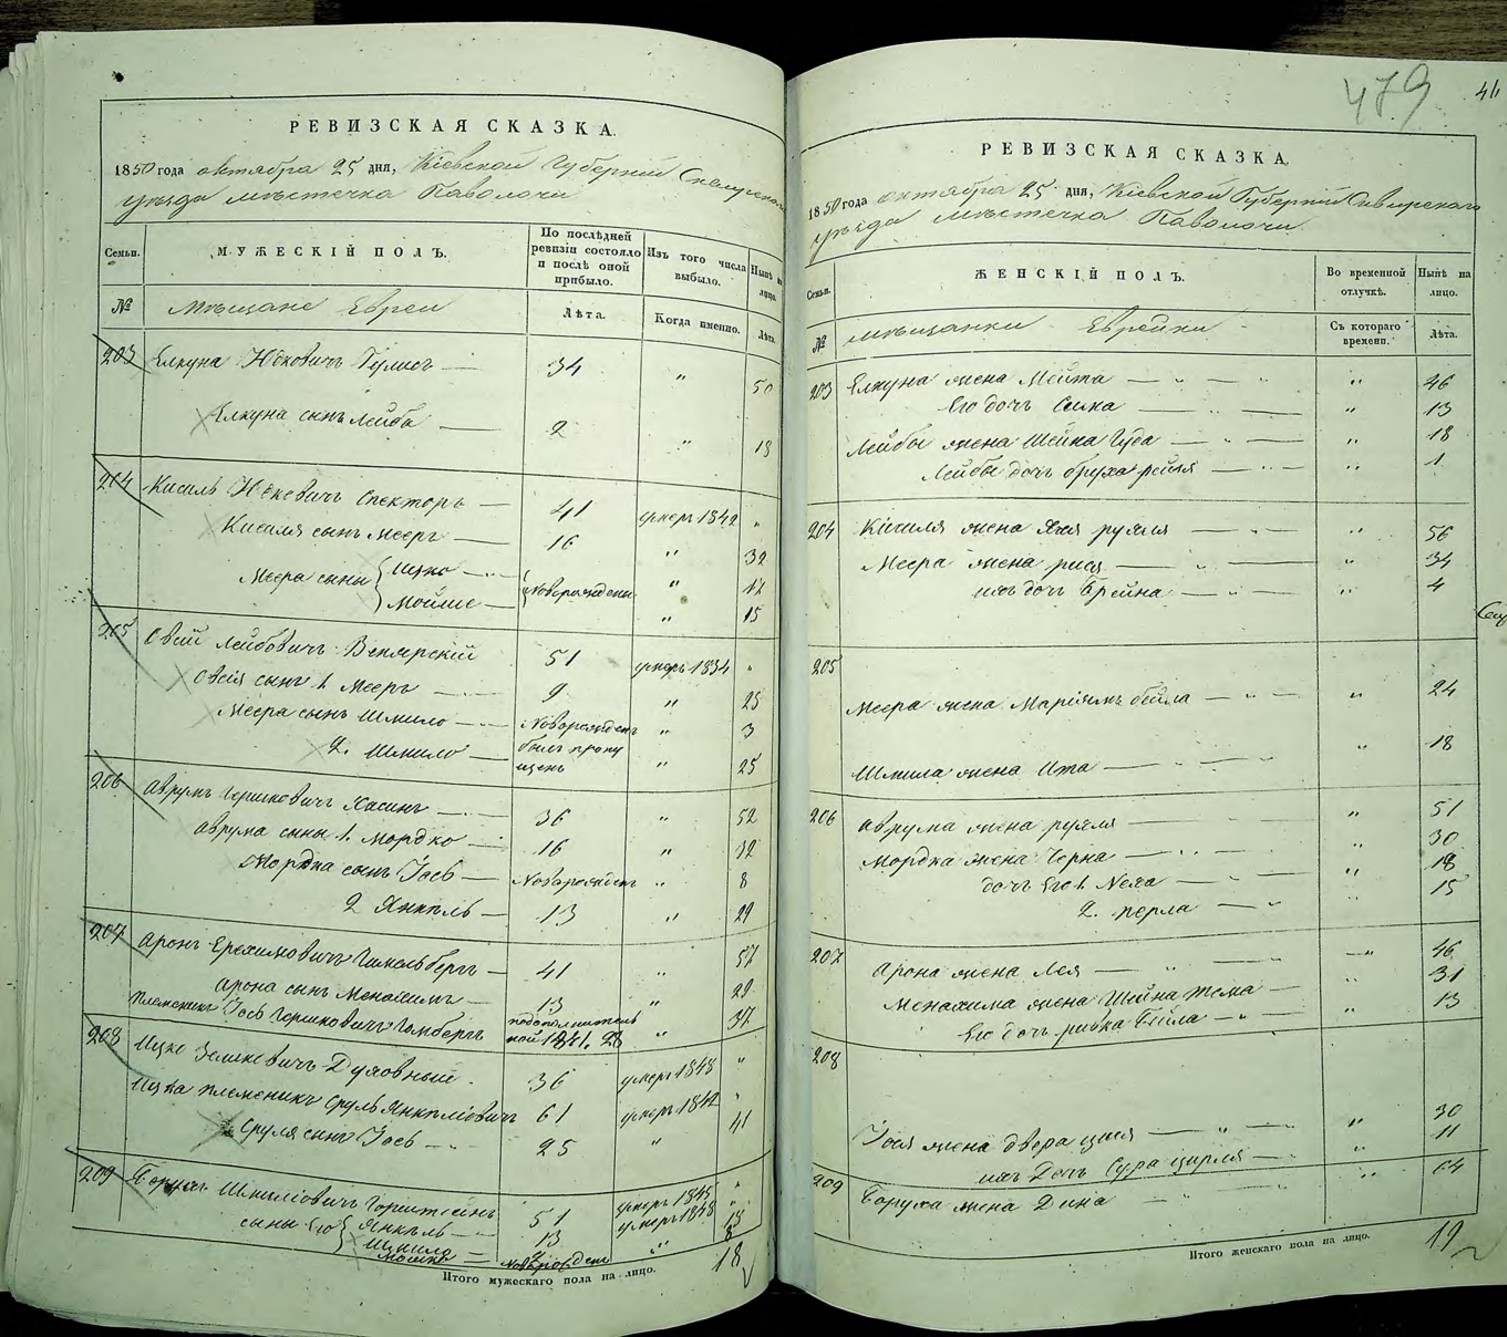 РЕВИЗСКАЯ СКАЗКА.
1850 года октября 25 дня, Кіевской Губерніи Сквирскаго
уѣзда мѣстечка Паволочи
Семьи.
МУЖЕСКІЙ ПОЛЪ.
По послѣдней ревизіи состояло и послѣ оной прибыло.
Изъ того числа выбыло.
Нынѣ на лицо.
№
Мѣщане Евреи
Лѣта.
Когда именно.
Лѣта.
203 Елкуна Юковичъ 34 " 50
Елкуна сынъ Лейба 2 " 18
204 Кисиль Юкевичъ Спекторъ 41 умеръ 1842 "
Кисиля сынъ Мееръ 16 " 32
Меера сыны Ицко Новорожденъ " 17
Мойше " 15
205 Овсій Лейбовичъ 51 умеръ 1834 "
Овсія сынъ 1. Мееръ 9 " 25
Меера сынъ Шмило Новорожденъ " 3
2. Шмило былъ пропу
щенъ " 25
206 Аврумъ Гершковичъ Хасинъ 36 " 52
Аврума сыны 1. Мордко 16 " 32
Мордка сынъ Іосъ Новорожденъ " 8
2 Янкель 13 " 29
207 Аронъ Ерохимовичъ 41 " 57
Арона сынъ Менахимъ 13 " 29
Племеникъ Іосъ Гершковичъ Гимбергъ подополнитель
ной 1841. 28 " 37
208 Ицко Зеликовичъ Духовный 36 умеръ 1848 "
Ицка племеникъ Сруль Янкеліовичъ 61 умеръ 1842 "
Сруля сынъ Іосъ 25 " 41
209 Борухъ Шмиліовичъ 51 умеръ 1845 "
сыны Его Янкель 13 умеръ 1848 "
Шмило 18
Мошко Новорожденъ " 8
Итого мужескаго пола на лицо. 18
479
РЕВИЗСКАЯ СКАЗКА.
1850 года октября 25 дня, Кіевской Губерніи Сквирскаго
уѣзда мѣстечка Паволочи
Семьи.
ЖЕНСКІЙ ПОЛЪ.
Во временной отлучкѣ.
Нынѣ на лицо.
№
мѣщанки Еврейки
Съ котораго времени.
Лѣта.
203 Елкуна жена Мейта " 46
Его дочь Сиka " 13
Лейбы жена Шейна Гуда " 18
Лейбы дочь Бруха рейзя " 1
204 Кисиля жена Хая рухля " 56
Меера жена рися " 34
ихъ дочь Брейна " 4
205
Меера жена Маріямъ бейла " 24
Шмила жена Ита " 18
206 Аврума жена рухля " 51
Мордка жена Черна " 30
дочь Его 1. Неха " 18
2. перла " 15
207 Арона жена Лея " 46
Менахима жена Шейна " 31
Его дочь ривка бейла " 13
208
Іося жена двера " 30
ихъ дочь Сура цирля " 11
209 Боруха жена Дина " 64
Итого женскаго пола на лицо. 19